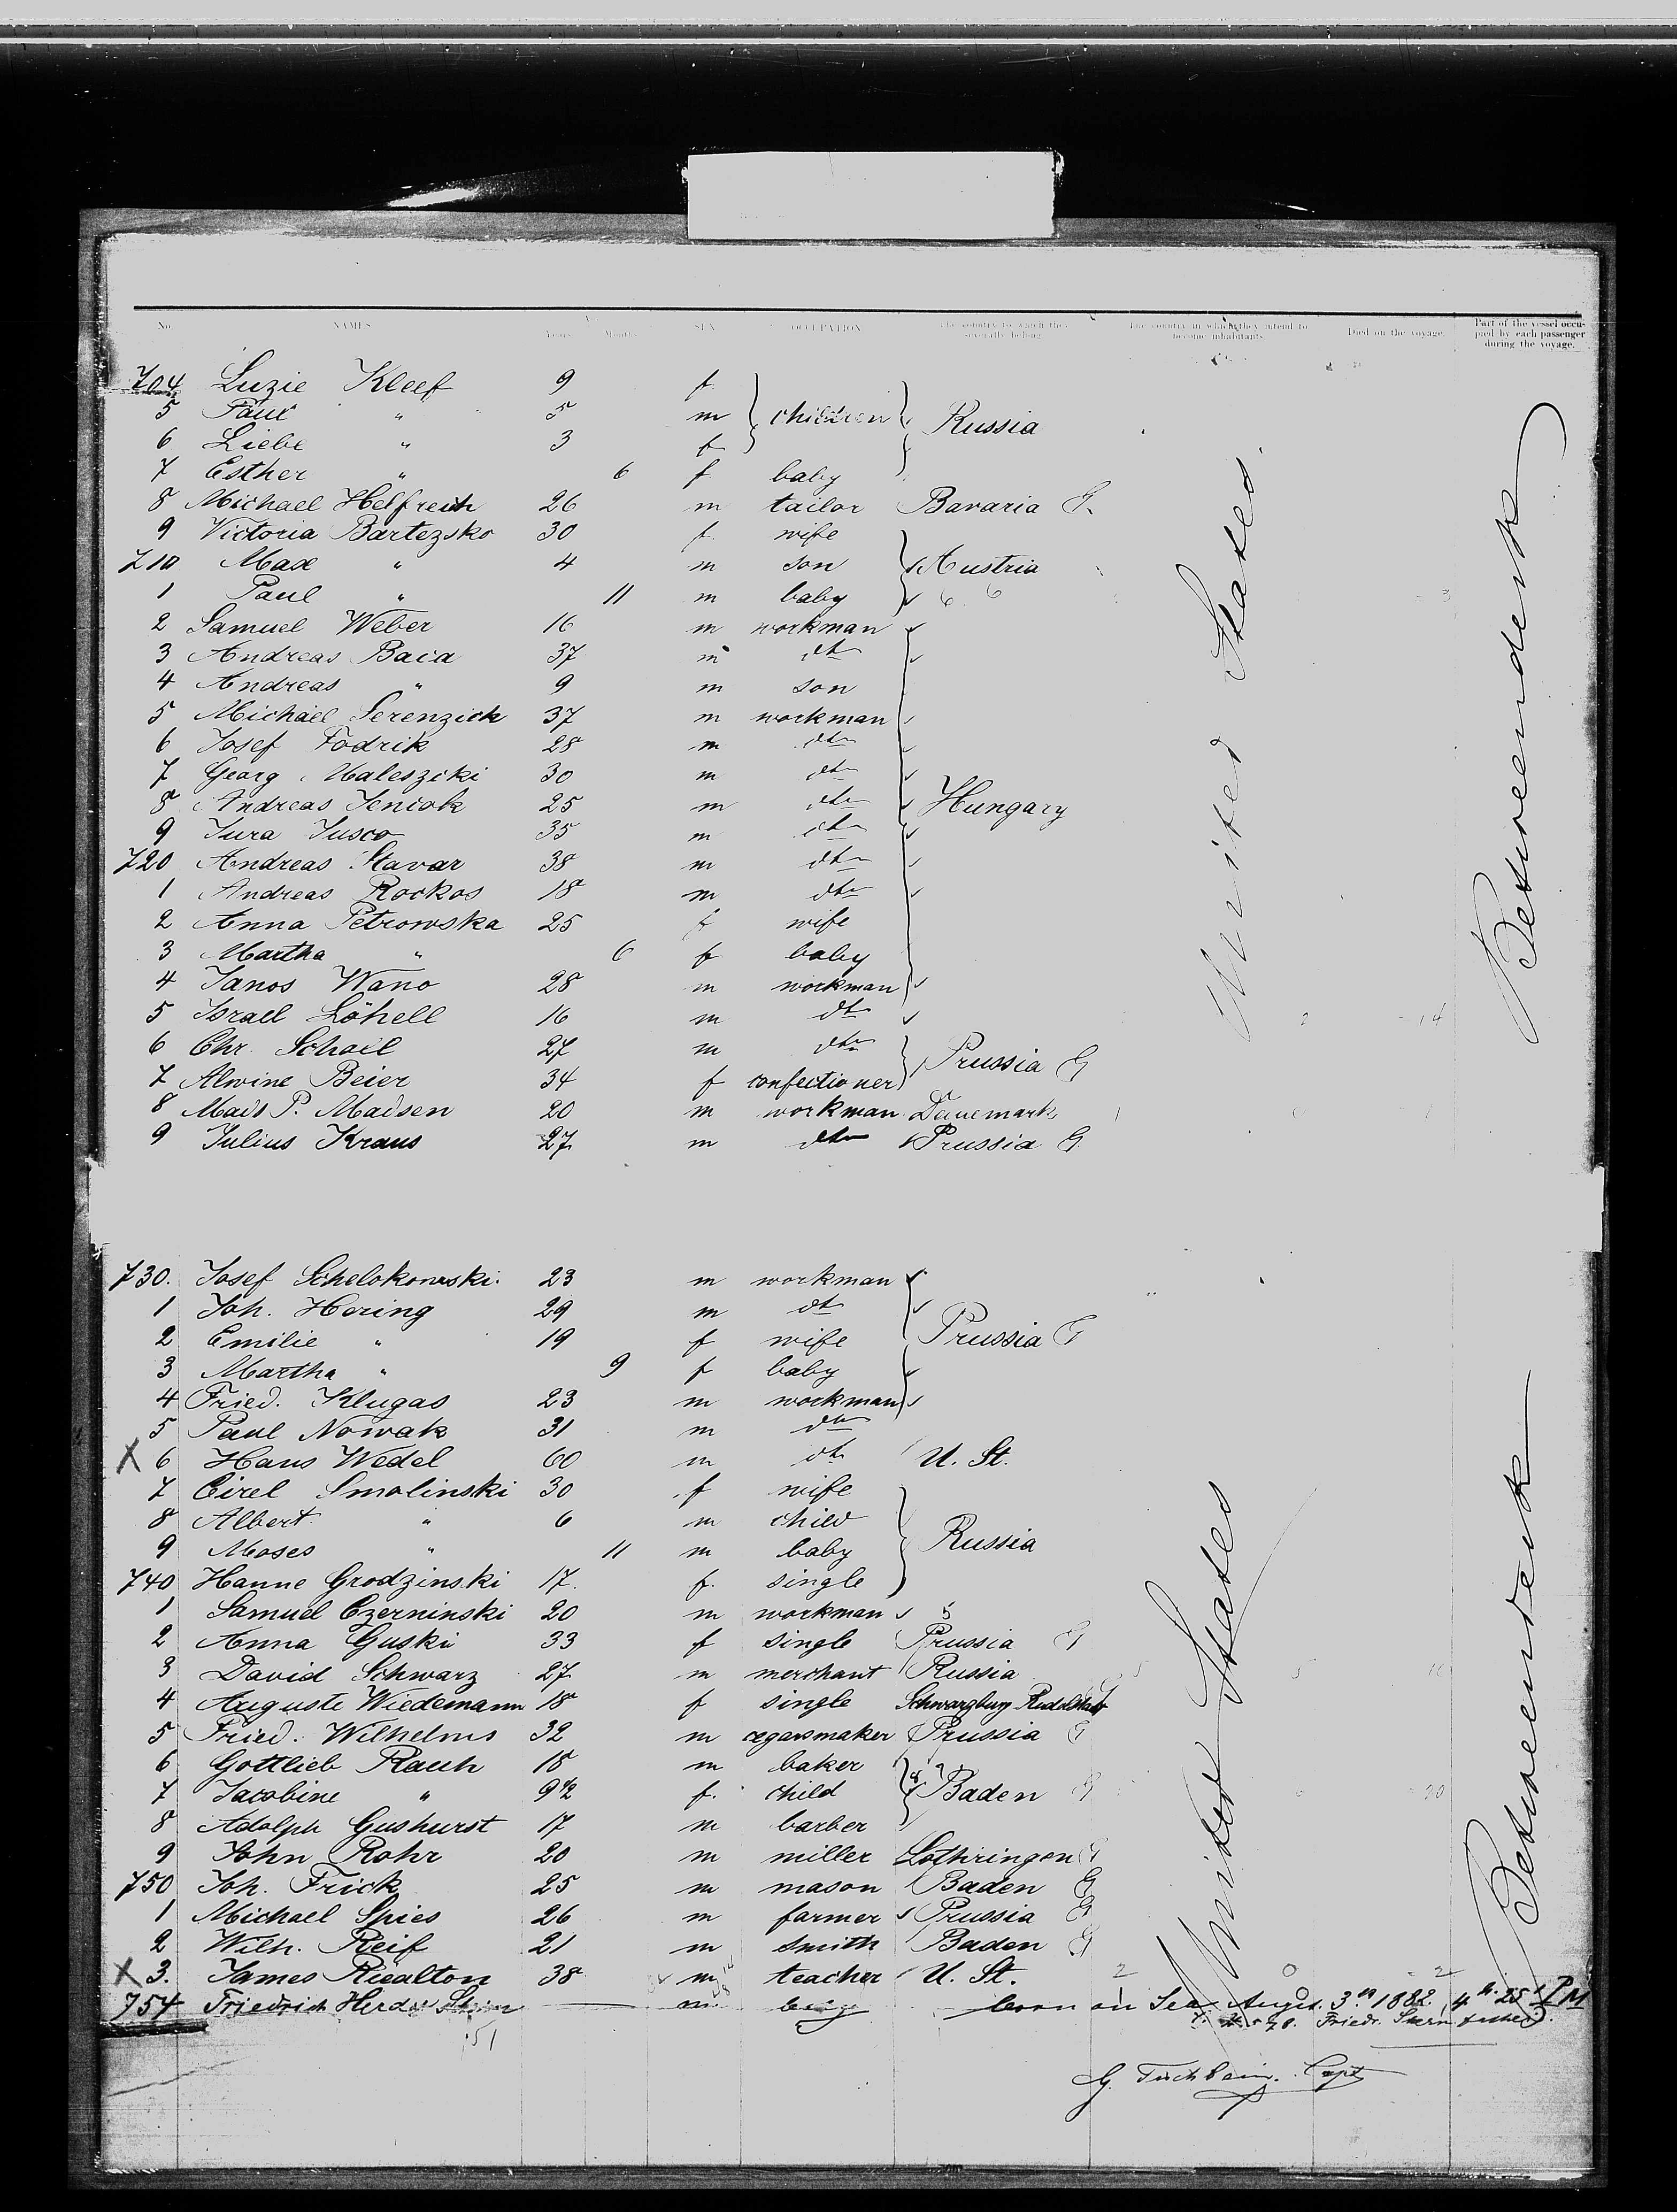 No. NAMES Years Months SEX OCCUPATION The country to which they severally belong The country in which they intend to become inhabitants. Died on the voyage. Part of the vessel occupied by each passenger during the voyage.
704 Luzie Kleef 9 f
5 Paul " 5 m children Russia
6 Liebe " 3 f
7 Esther " 6 f baby
8 Michael Helfreich 26 m tailor Bavaria G
9 Victoria Bartezsko 30 f wife
710 Max " 4 m son Austria
1 Paul " 11 m baby
2 Samuel Weber 16 m workman
3 Andreas Baca 37 m dto
4 Andreas " 9 m son
5 Michael Serenzick 37 m workman
6 Josef Fodrik 28 m dto
7 Georg Maleszcki 30 m dto
8 Andreas Jencok 25 m dto Hungary
9 Jura Jusco 35 m dto
720 Andreas Stavar 38 m dto
1 Andreas Rockos 18 m dto
2 Anna Petrowska 25 f wife
3 Martha " 6 f baby
4 Janos Wano 28 m workman
5 Israel Löhell 16 m dto
6 Chr. Schoel 27 m dto Prussia G
7 Alwine Beier 34 f confectioner
8 Mads P. Madsen 20 m workman Danemark
9 Julius Kraus 27 m dto Prussia G
United States
Betweendeck
730. Josef Schelokowski 23 m workman
1 Joh. Hering 29 m dto
2 Emilie " 19 f wife Prussia G
3 Martha " 9 f baby
4 Fried. Klugas 23 m workman
5 Paul Nowak 31 m dto
X 6 Hans Wedel 60 m dto U. St.
7 Cirel Smolinski 30 f wife
8 Albert " 6 m child
9 Moses " 11 m baby Russia
740 Hanne Grodzinski 17 f. single
1 Samuel Czerninski 20 m workman
2 Anna Guski 33 f single Prussia G
3 David Schwarz 27 m merchant Russia
4 Auguste Wiedemann 18 f single Schwarzburg Rudolstadt
5 Fried. Wilhelms 32 m cegarsmaker Prussia G
6 Gottlieb Rauh 18 m baker
7 Jacobine " 9½ f. child Baden G
8 Adolph Gushurst 17 m barber
9 John Rohr 20 m miller Lothringen G
750 Joh. Frick 25 m mason Baden G
1 Michael Spies 26 m farmer Prussia G
2 Wilh. Reif 21 m smith Baden G
X 3. James Ricalton 38 m teacher U. St.
754 Friedrich Herder Stern m. born on Sea August 3rd 1882 4 h 25 P M
Friedr. Stern father
United States
Betweendeck
151
Capt